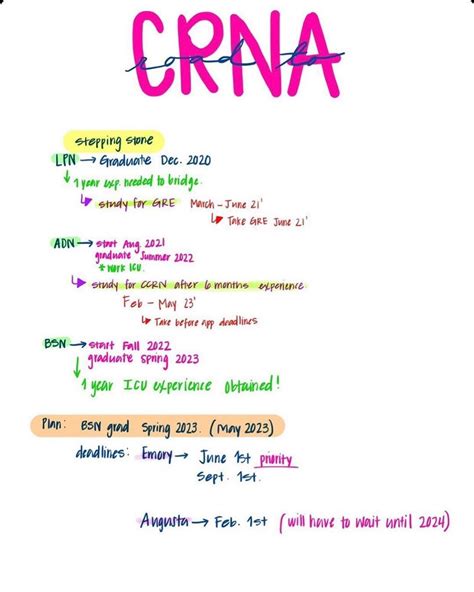 CRNA
road to
stepping stone
LPN → Graduate Dec. 2020
↓ 1 year exp. needed to bridge.
↳ study for GRE March - June 21'
↳ Take GRE June 21'
ADN → start Aug. 2021
graduate Summer 2022
* work ICU.
↳ study for CCRN after 6 months experience
Feb - May 23'
↳ Take before app deadlines
BSN → start Fall 2022
graduate spring 2023
↓ 1 year ICU experience obtained!
Plan: BSN grad Spring 2023. (May 2023)
deadlines: Emory → June 1st priority
Sept. 1st.
Augusta → Feb. 1st (will have to wait until 2024)